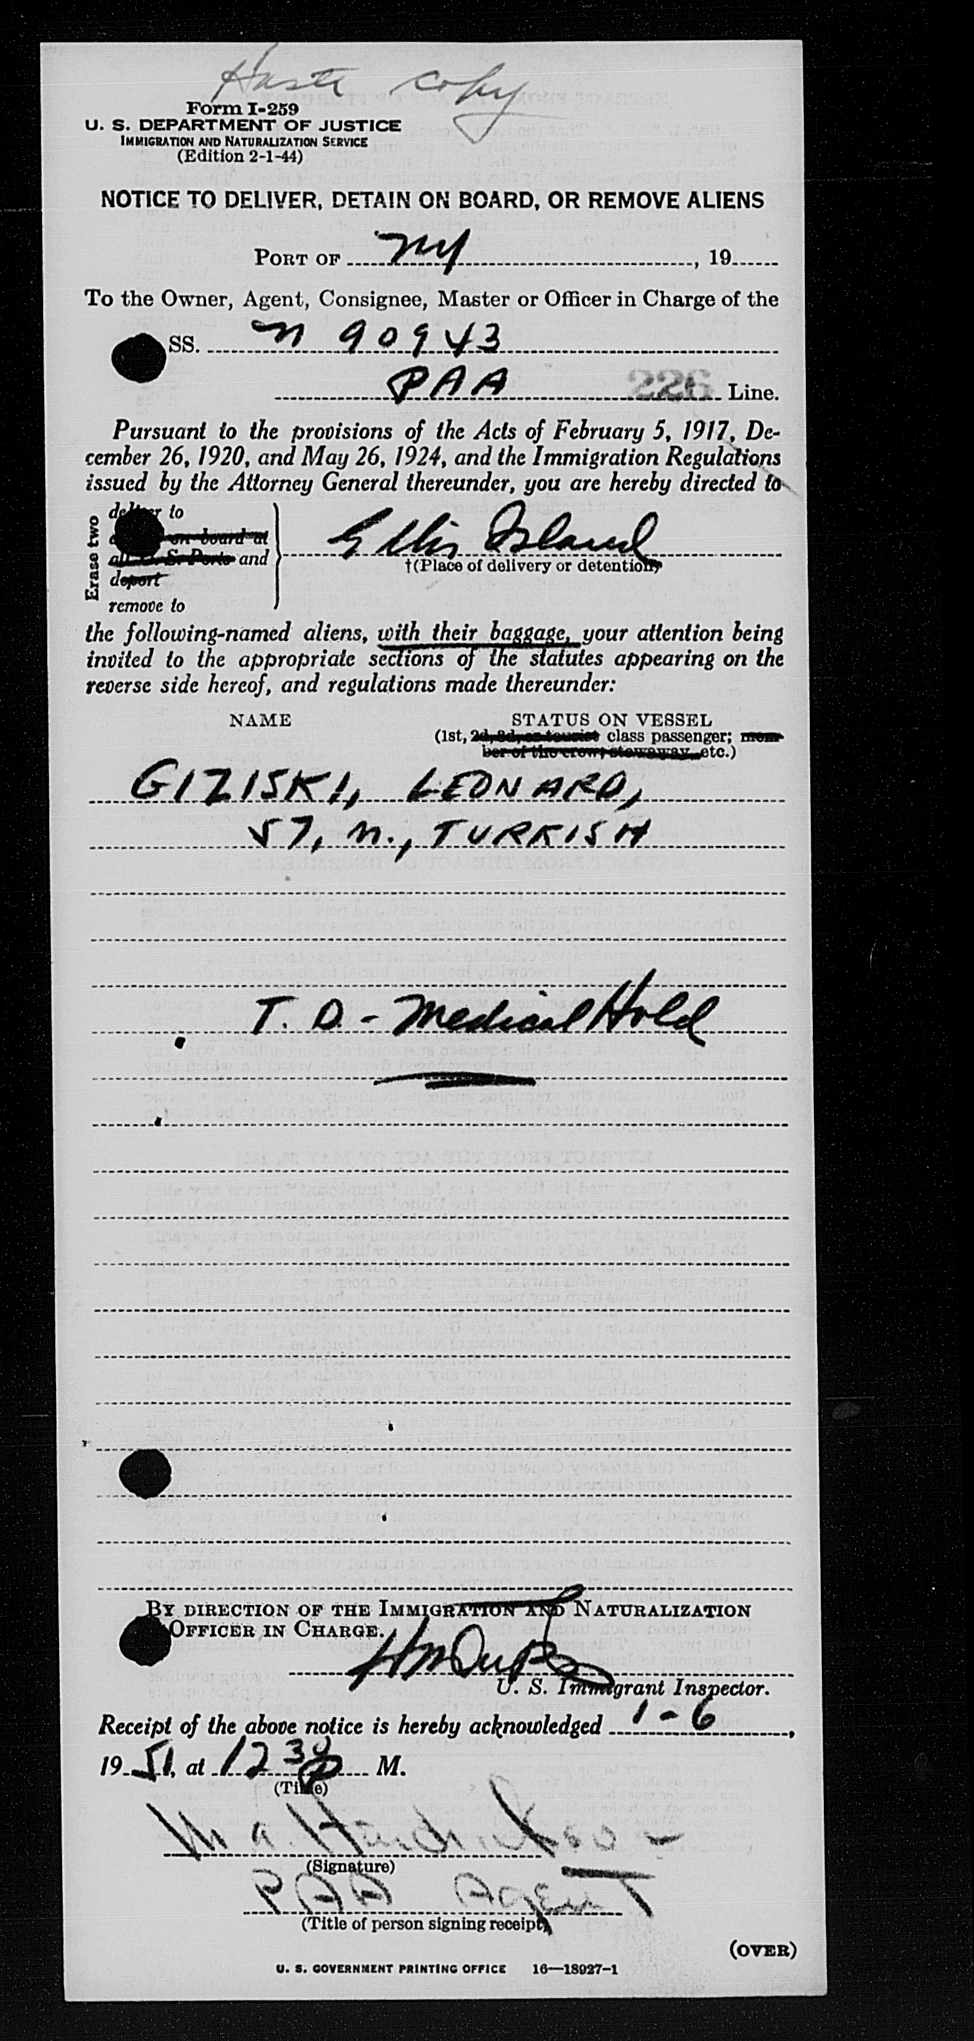 Haste copy
Form I-259
U. S. DEPARTMENT OF JUSTICE
IMMIGRATION AND NATURALIZATION SERVICE
(Edition 2-1-44)
NOTICE TO DELIVER, DETAIN ON BOARD, OR REMOVE ALIENS
PORT OF NY, 19
To the Owner, Agent, Consignee, Master or Officer in Charge of the
SS. N 90943
PAA 226 Line.
Pursuant to the provisions of the Acts of February 5, 1917, De-
cember 26, 1920, and May 26, 1924, and the Immigration Regulations
issued by the Attorney General thereunder, you are hereby directed to
Erase two
deliver to
on board at
all U. S. Ports and
deport
remove to
Ellis Island
†(Place of delivery or detention)
the following-named aliens, with their baggage, your attention being
invited to the appropriate sections of the statutes appearing on the
reverse side hereof, and regulations made thereunder:
NAME STATUS ON VESSEL
(1st, 2d, 3d, or tourist class passenger; mem-
ber of the crew, stowaway, etc.)
GIZISKI, LEONARD,
57, M., TURKISH
T. D. - Medical Hold
BY DIRECTION OF THE IMMIGRATION AND NATURALIZATION
OFFICER IN CHARGE.
U. S. Immigrant Inspector.
Receipt of the above notice is hereby acknowledged 1-6,
1951, at 12 30 P M.
(Title)
M A.
(Signature)
PAA Agent
(Title of person signing receipt)
(OVER)
U. S. GOVERNMENT PRINTING OFFICE 16—18927-1